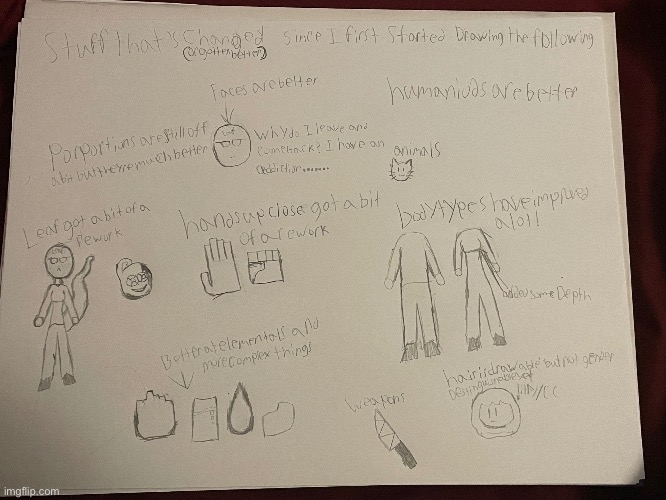 Stuff that's Changed since I first Started Drawing the following
(or gotten better)
Faces are better
humanioids are better
Porportions are still off
a bit but they're much better
Why do I leave and
come back? I have an
addiction.......
animals
Leaf got a bit of a
rework
hands up close got a bit
of a rework
body types have improved
a lot!
added some Depth
Better at elementals and
more complex things
weapons
hair is drawable but not gender
imgflip.com